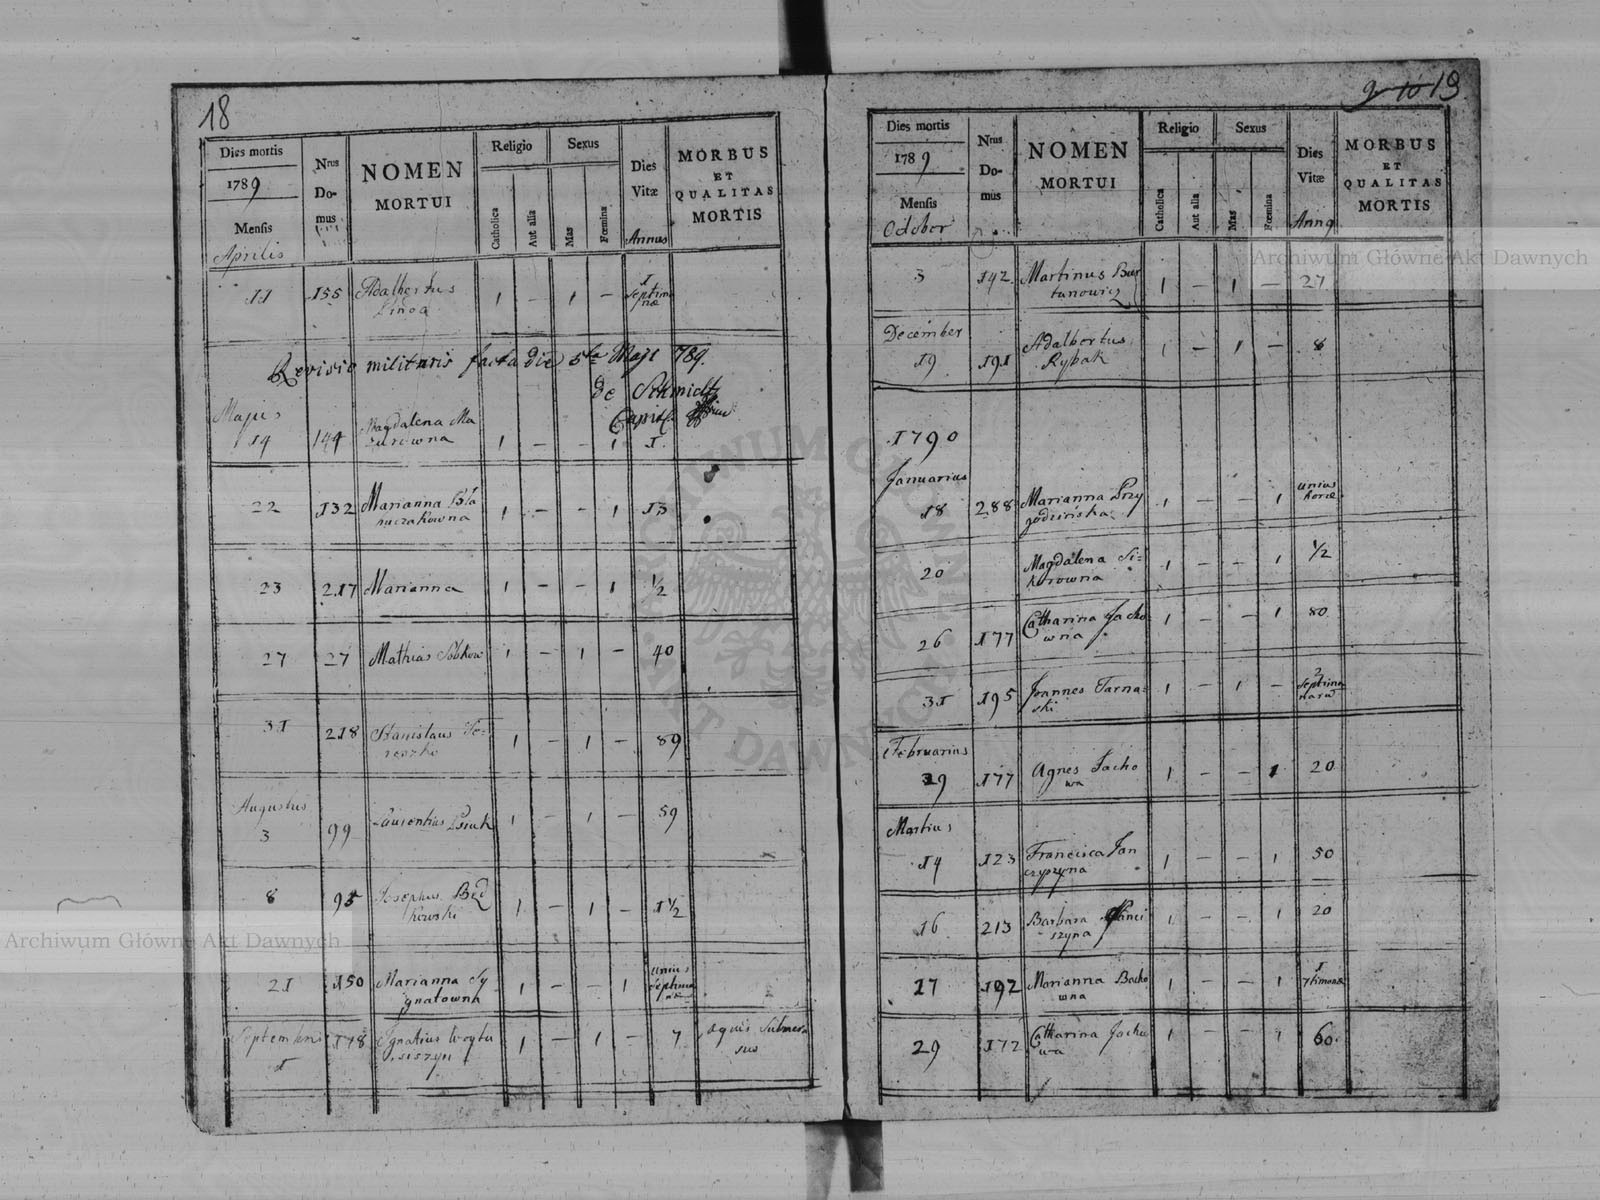 18
Dies mortis
1789
Mensis
Aprilis
Nrus
Do-
mus
NOMEN
MORTUI
Religio
Catholica
Aut alia
Sexus
Mas
Fœmina
Dies
Vitæ
Annus
MORBUS
ET
QUALITAS
MORTIS
11 155 Adalbertus 1 – 1 – 1
septim
næ
Revisio militaris facta die 5ta Maji 789.
de Schmidt
Majus
14 144 Magdalena Ma
zurowna 1 – – 1 1
22 132 Marianna Bła
1 – – 1 13
23 217 Marianna 1 – – 1 1/2
27 27 Mathias Sobkow 1 – 1 – 40
31 218 Stanislaus
1 – 1 – 89
Augustus
3 99 Laurentius 1 – 1 – 59
8 95 Josephus Bed
kowski 1 – 1 – 1 1/2
21 150 Marianna Sy
gnatowna 1 – – 1 unius
septima
næ
Septembris
1 178 Ignatius Woytu
siszyn 1 – 1 – 7 aquis submer
sus
19
Dies mortis
1789
Mensis
October
Nrus
Do-
mus
NOMEN
MORTUI
Religio
Catholica
Aut alia
Sexus
Mas
Fœmina
Dies
Vitæ
MORBUS
ET
QUALITAS
MORTIS
3 142 Martinus Bur
tanowicz 1 – 1 – 27
December
19 191 Adalbertus
Rybak 1 – 1 – 8
1790
Januarius
18 288 Marianna Przy
godzińska 1 – – 1 unius
horæ
20 Magdalena Si-
korowna 1 – – 1 1/2
26 177 Catharina Jacko
wna 1 – – 1 80
31 195 Joannes Tarna-
ski 1 – 1 – 2
septima
narū
Februarius
29 177 Agnes Jacko
wa 1 – – 1 20
Martius
14 123 Francisca Jan
czyszyna 1 – – 1 50
16 213 Barbara
szyna 1 – – 1 20
17 192 Marianna Bacho
wna 1 – – 1 1
7timanæ
29 172 Catharina Jacko
wa 1 – – 1 60
Archiwum Główne Akt Dawnych
Archiwum Główne Akt Dawnych
ARCHIWUM GŁÓWNE AKT DAWNYCH